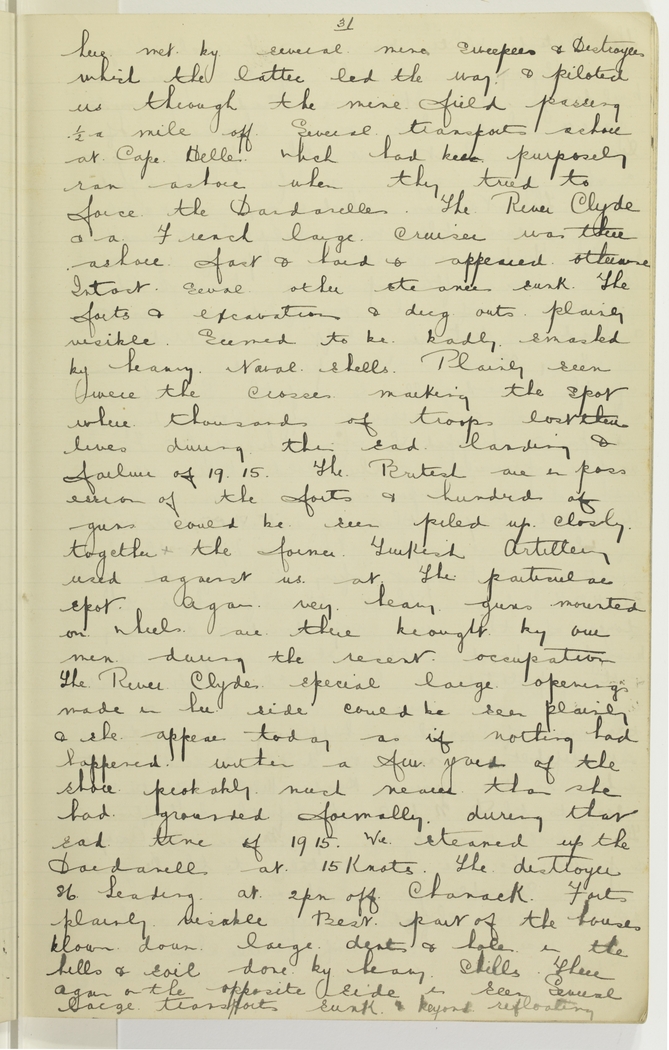 31
here met by several mine sweepers & Destroyers
which the latter led the way & piloted
us through the mine field passing
½ a mile off. Several transports ashore
at Cape Helle. which had been purposely
ran ashore when they tried to
force the Dardanelles. The River Clyde
& a French large Cruiser was there
ashore fast & hard & appeared otherwise
Intact. Seval other steamers sunk. The
forts & excavations & dug outs plainly
visible. Seemed to be badly smashed
by heavy Naval shells. Plainly seen
were the crosses marking the spot
where thousands of troops lost their
lives during the sad landing &
failure of 1915. The British are in poss
ession of the forts & hundreds of
guns could be seen piled up closly.
together the former Turkish Artillery
used against us at the particular
spot. Again very heavy guns mounted
on wheels are there brought by our
men during the recent occupation
The River Clydes special large openings
made in her side could be seen plainly
& she appear today as if nothing had
happened. within a few yards of the
shore probably much nearer than she
had grounded formally during that
sad time of 1915. We steamed up the
Dardanells at 15 Knots. The destroyer
86 leading at 2pm off Chanack. Forts
plainly visable Best part of the houses
blown down large dents & holes in the
hills & soil done by heavy Shells. There
again on the opposite side is seen Several
large transports sunk & beyond refloating